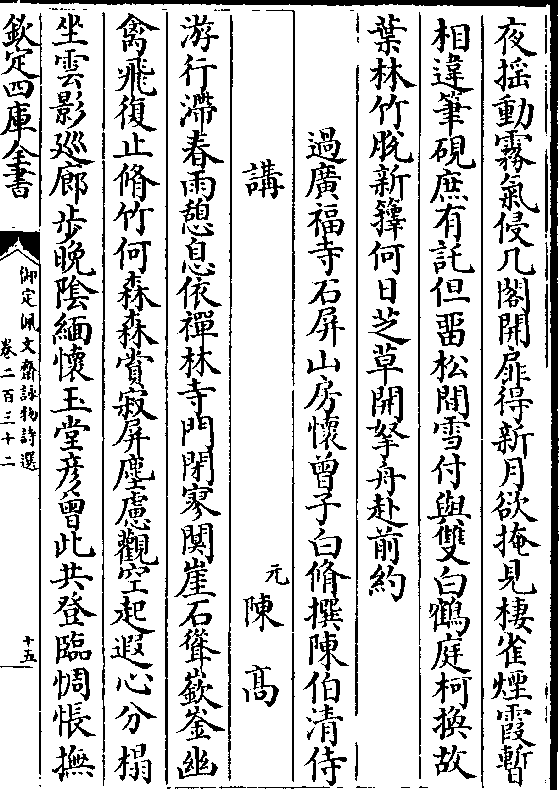 夜揺動霧氣侵几閣開扉得新月欲掩見棲雀煙霞暫
相違筆硯庶有託但畱松間雪付與雙白鶴庭柯換故
葉林竹脫新籜何日芝草開拏舟赴前約
過廣福寺石屏山房懷曾子白脩撰陳伯清侍
講　元　陳　高
游行滯春雨憩息依禪林寺門閉寥闃崖石聳嶔崟幽
禽飛復止脩竹何森森賞寂屏塵慮觀空起遐心分榻
坐雲影廵廊步晚陰緬懷玉堂彦曾此共登臨惆悵撫
欽定四庫全書
御定佩文齋詠物詩選
卷二百三十二
十五